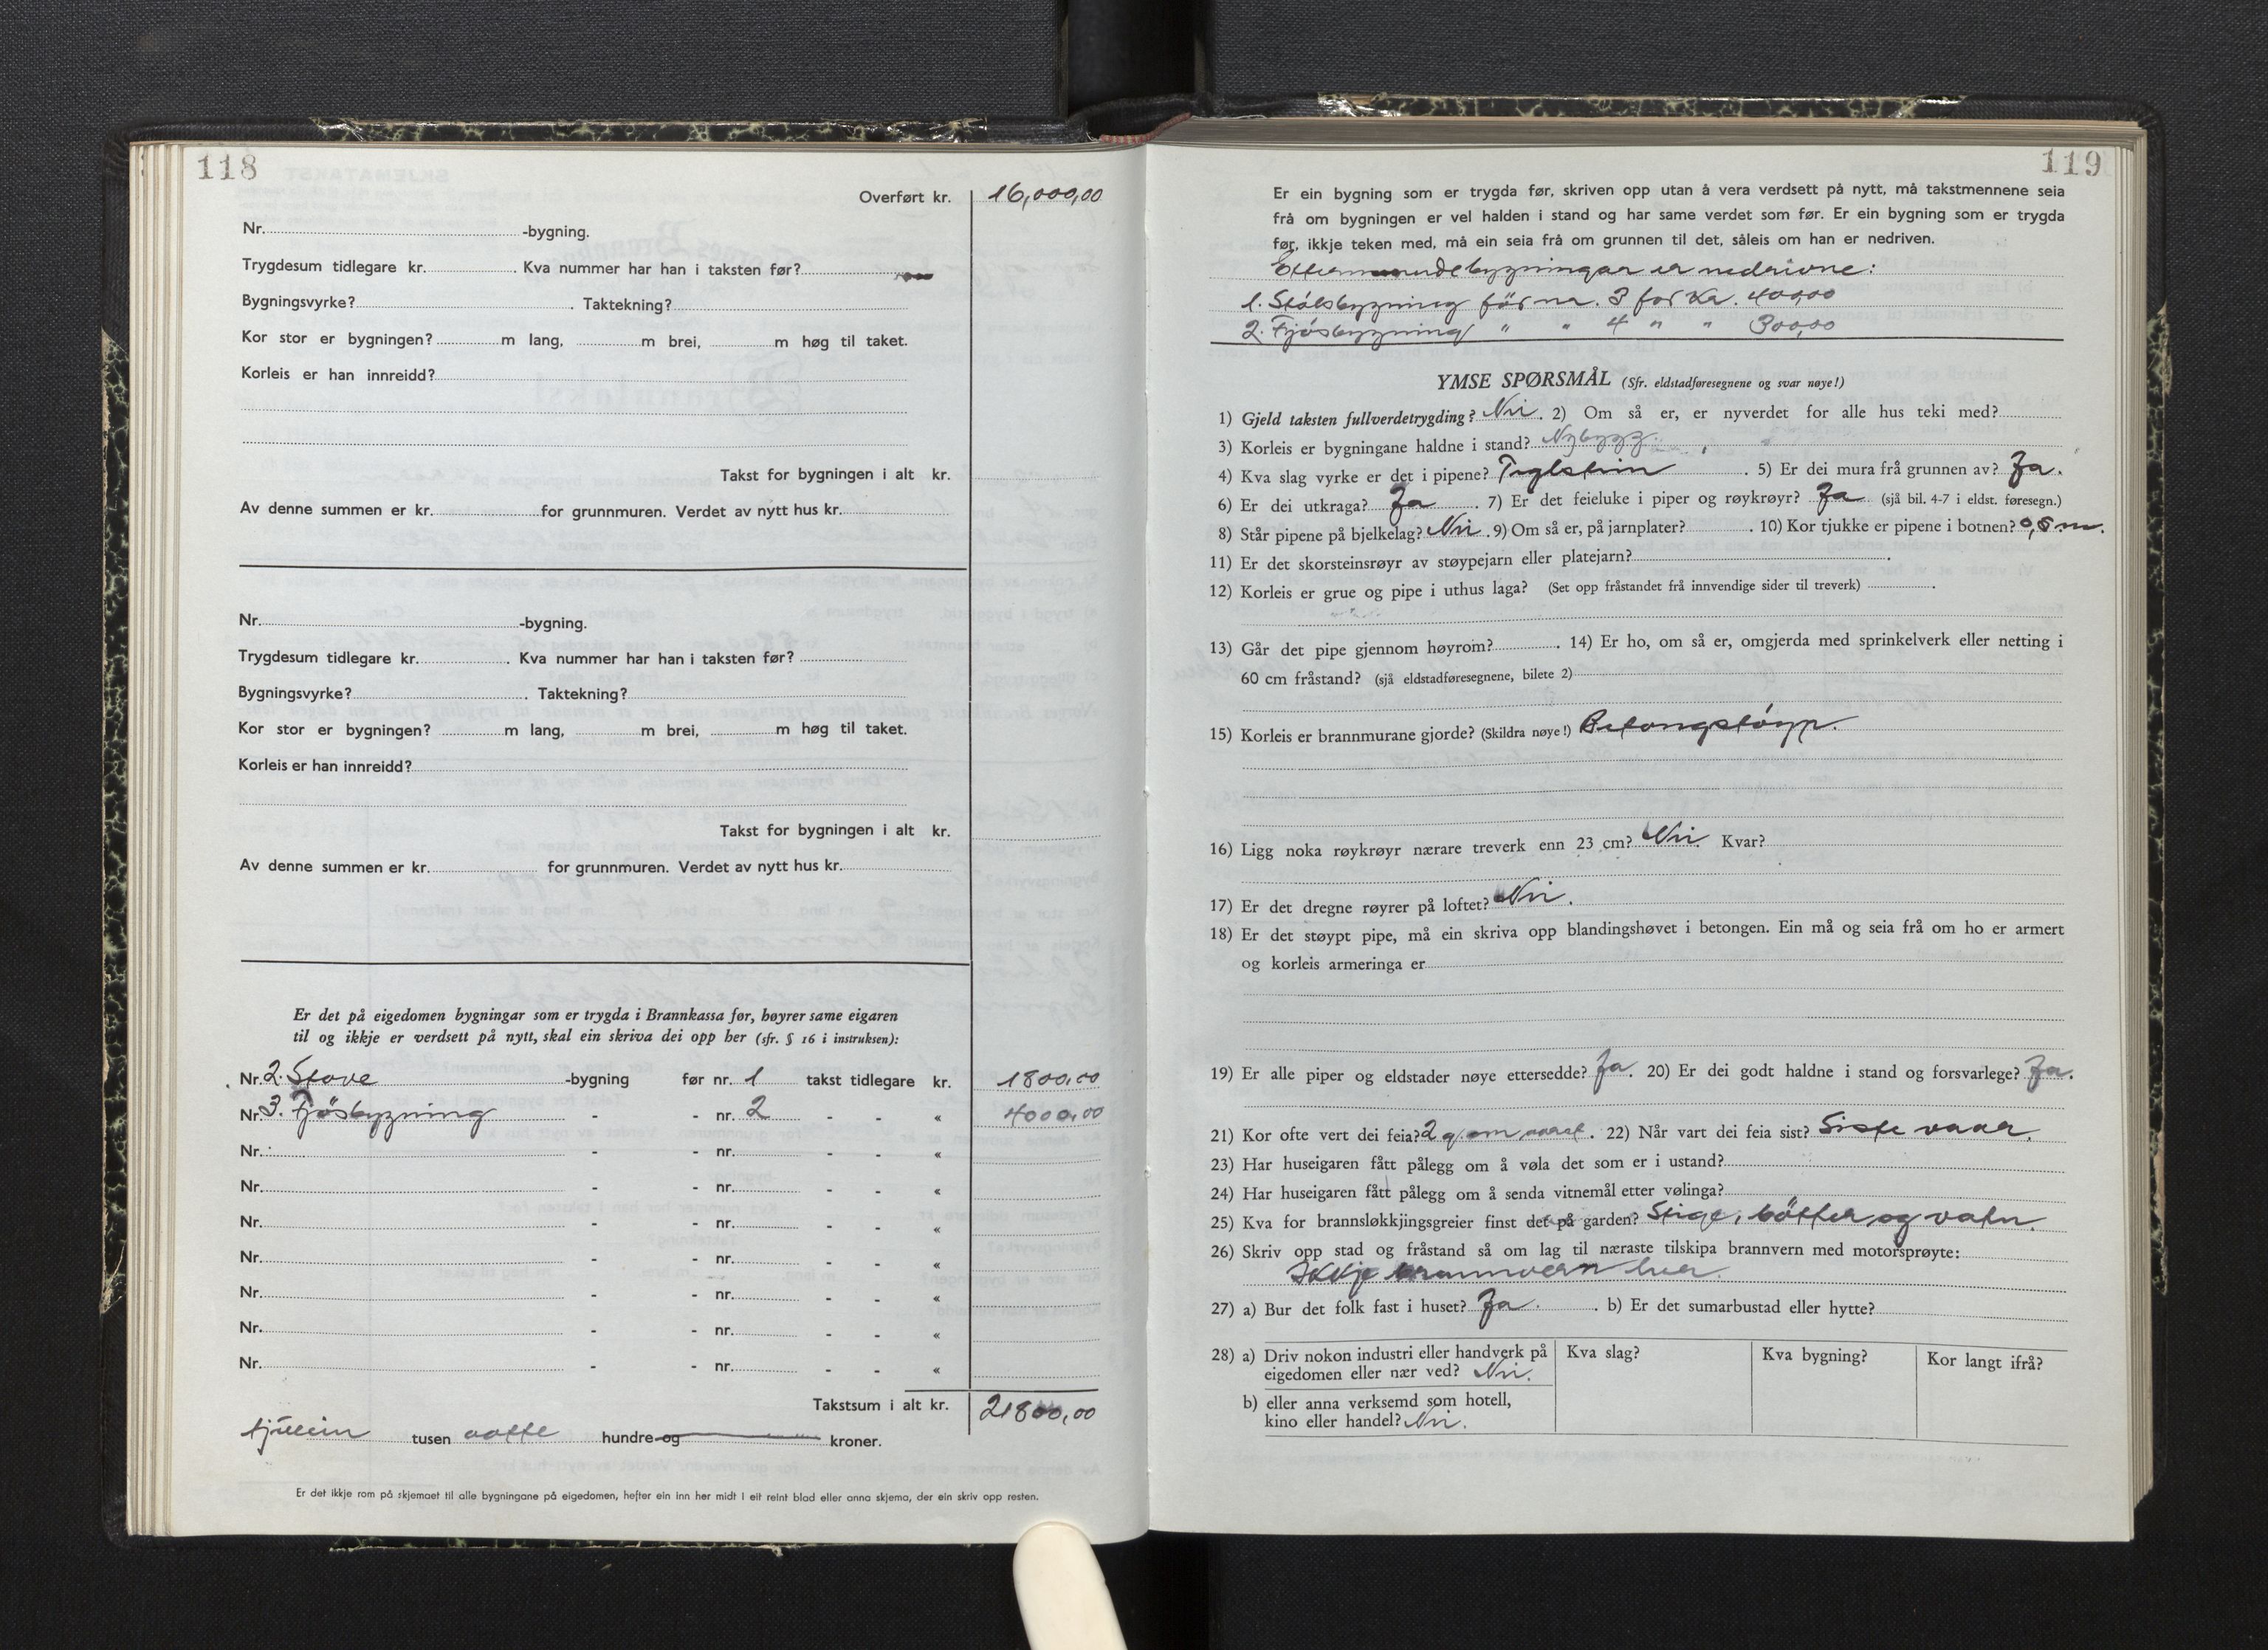 118
Overført kr. 16,000,00
Nr. -bygning.
Trygdesum tidlegare kr. . Kva nummer har han i taksten før?
Bygningsvyrke? . Taktekning?
Kor stor er bygningen? m lang, m brei, m høg til taket.
Korleis er han innreidd?
Takst for bygningen i alt kr.
Av denne summen er kr. for grunnmuren. Verdet av nytt hus kr.
Nr. -bygning.
Trygdesum tidlegare kr. . Kva nummer har han i taksten før?
Bygningsvyrke? . Taktekning?
Kor stor er bygningen? m lang, m brei, m høg til taket.
Korleis er han innreidd?
Takst for bygningen i alt kr.
Av denne summen er kr. for grunnmuren. Verdet av nytt hus kr.
Er det på eigedomen bygningar som er trygda i Brannkassa før, høyrer same eigaren
til og ikkje er verdsett på nytt, skal ein skriva dei opp her (sfr. § 16 i instruksen):
Nr. 2. Stove -bygning før nr. 1 takst tidlegare kr. 1800,00
Nr. 3. Fjösbygning - - nr. 2 - - « 4000,00
Nr. - - nr. - - «
Nr. - - nr. - - «
Nr. - - nr. - - «
Nr. - - nr. - - «
Nr. - - nr. - - «
Nr. - - nr. - - «
Nr. - - nr. - - «
Takstsum i alt kr. 21800,00
tjuein tusen aatte hundre og kroner.
Er det ikkje rom på skjemaet til alle bygningane på eigedomen, hefter ein inn her midt i eit reint blad eller anna skjema, der ein skriv opp resten.
119
Er ein bygning som er trygda før, skriven opp utan å vera verdsett på nytt, må takstmennene seia
frå om bygningen er vel halden i stand og har same verdet som før. Er ein bygning som er trygda
før, ikkje teken med, må ein seia frå om grunnen til det, såleis om han er nedriven.
bygningar er nedrivne:
1. Stölsbygning för nr. 3 for Kr. 400,00
2. Fjösbygning " " 4 " " 300,00
YMSE SPØRSMÅL (Sfr. eldstadføresegnene og svar nøye!)
1) Gjeld taksten fullverdetrygding? Nei. 2) Om så er, er nyverdet for alle hus teki med?
3) Korleis er bygningane haldne i stand? Nybygg.
4) Kva slag vyrke er det i pipene? Teglstein . 5) Er dei mura frå grunnen av? Ja.
6) Er dei utkraga? Ja . 7) Er det feieluke i piper og røykrøyr? Ja (sjå bil. 4-7 i eldst. føresegn.)
8) Står pipene på bjelkelag? Nei . 9) Om så er, på jarnplater? . 10) Kor tjukke er pipene i botnen? 0,5 m.
11) Er det skorsteinsrøyr av støypejarn eller platejarn? .
12) Korleis er grue og pipe i uthus laga? (Set opp fråstandet frå innvendige sider til treverk) .
13) Går det pipe gjennom høyrom? . 14) Er ho, om så er, omgjerda med sprinkelverk eller netting i
60 cm fråstand? (sjå eldstadføresegnene, bilete 2)
15) Korleis er brannmurane gjorde? (Skildra nøye!) Betongstöyp.
16) Ligg noka røykrøyr nærare treverk enn 23 cm? Nei. Kvar?
17) Er det dregne røyrer på loftet? Nei.
18) Er det støypt pipe, må ein skriva opp blandingshøvet i betongen. Ein må og seia frå om ho er armert
og korleis armeringa er
19) Er alle piper og eldstader nøye ettersedde? Ja. 20) Er dei godt haldne i stand og forsvarlege? Ja.
21) Kor ofte vert dei feia? 2 g. om aaret. 22) Når vart dei feia sist? Siste vaar.
23) Har huseigaren fått pålegg om å vøla det som er i ustand?
24) Har huseigaren fått pålegg om å senda vitnemål etter vølinga?
25) Kva for brannsløkkjingsgreier finst det på garden? Stige, bötter og vatn.
26) Skriv opp stad og fråstand så om lag til næraste tilskipa brannvern med motorsprøyte:
Ikkje brannvern her.
27) a) Bur det folk fast i huset? Ja. . b) Er det sumarbustad eller hytte?
28) a) Driv nokon industri eller handverk på
eigedomen eller nær ved? Nei.
Kva slag? Kva bygning? Kor langt ifrå?
b) eller anna verksemd som hotell,
kino eller handel? Nei.